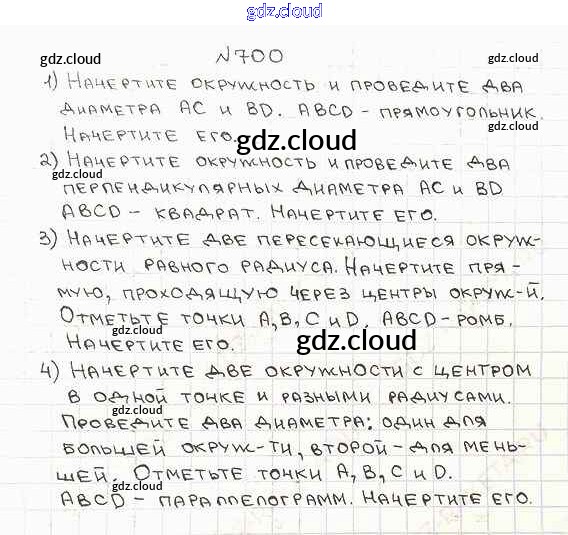 gdz.cloud
№700
gdz.cloud gdz.cloud
1) Начертите окружность и проведите два
диаметра AC и BD. ABCD – прямоугольник.
gdz.cloud
Начертите его.
gdz.cloud
2) Начертите окружность и проведите два
gdz.cloud
перпендикулярных диаметра AC и BD
ABCD – квадрат. Начертите его.
3) Начертите две пересекающиеся окруж-
ности равного радиуса. Начертите пря-
мую, проходящую через центры окруж-й.
Отметьте точки A, B, C и D. ABCD – ромб.
gdz.cloud
Начертите его.
gdz.cloud
gdz.cloud
4) Начертите две окружности с центром
в одной точке и разными радиусами.
gdz.cloud gdz.cloud
Проведите два диаметра: один для
большей окруж-ти, второй – для мень-
шей. Отметьте точки A, B, C и D.
gdz.cloud gdz.cloud
ABCD – параллелограмм. Начертите его.
gdz.cloud gdz.cloud